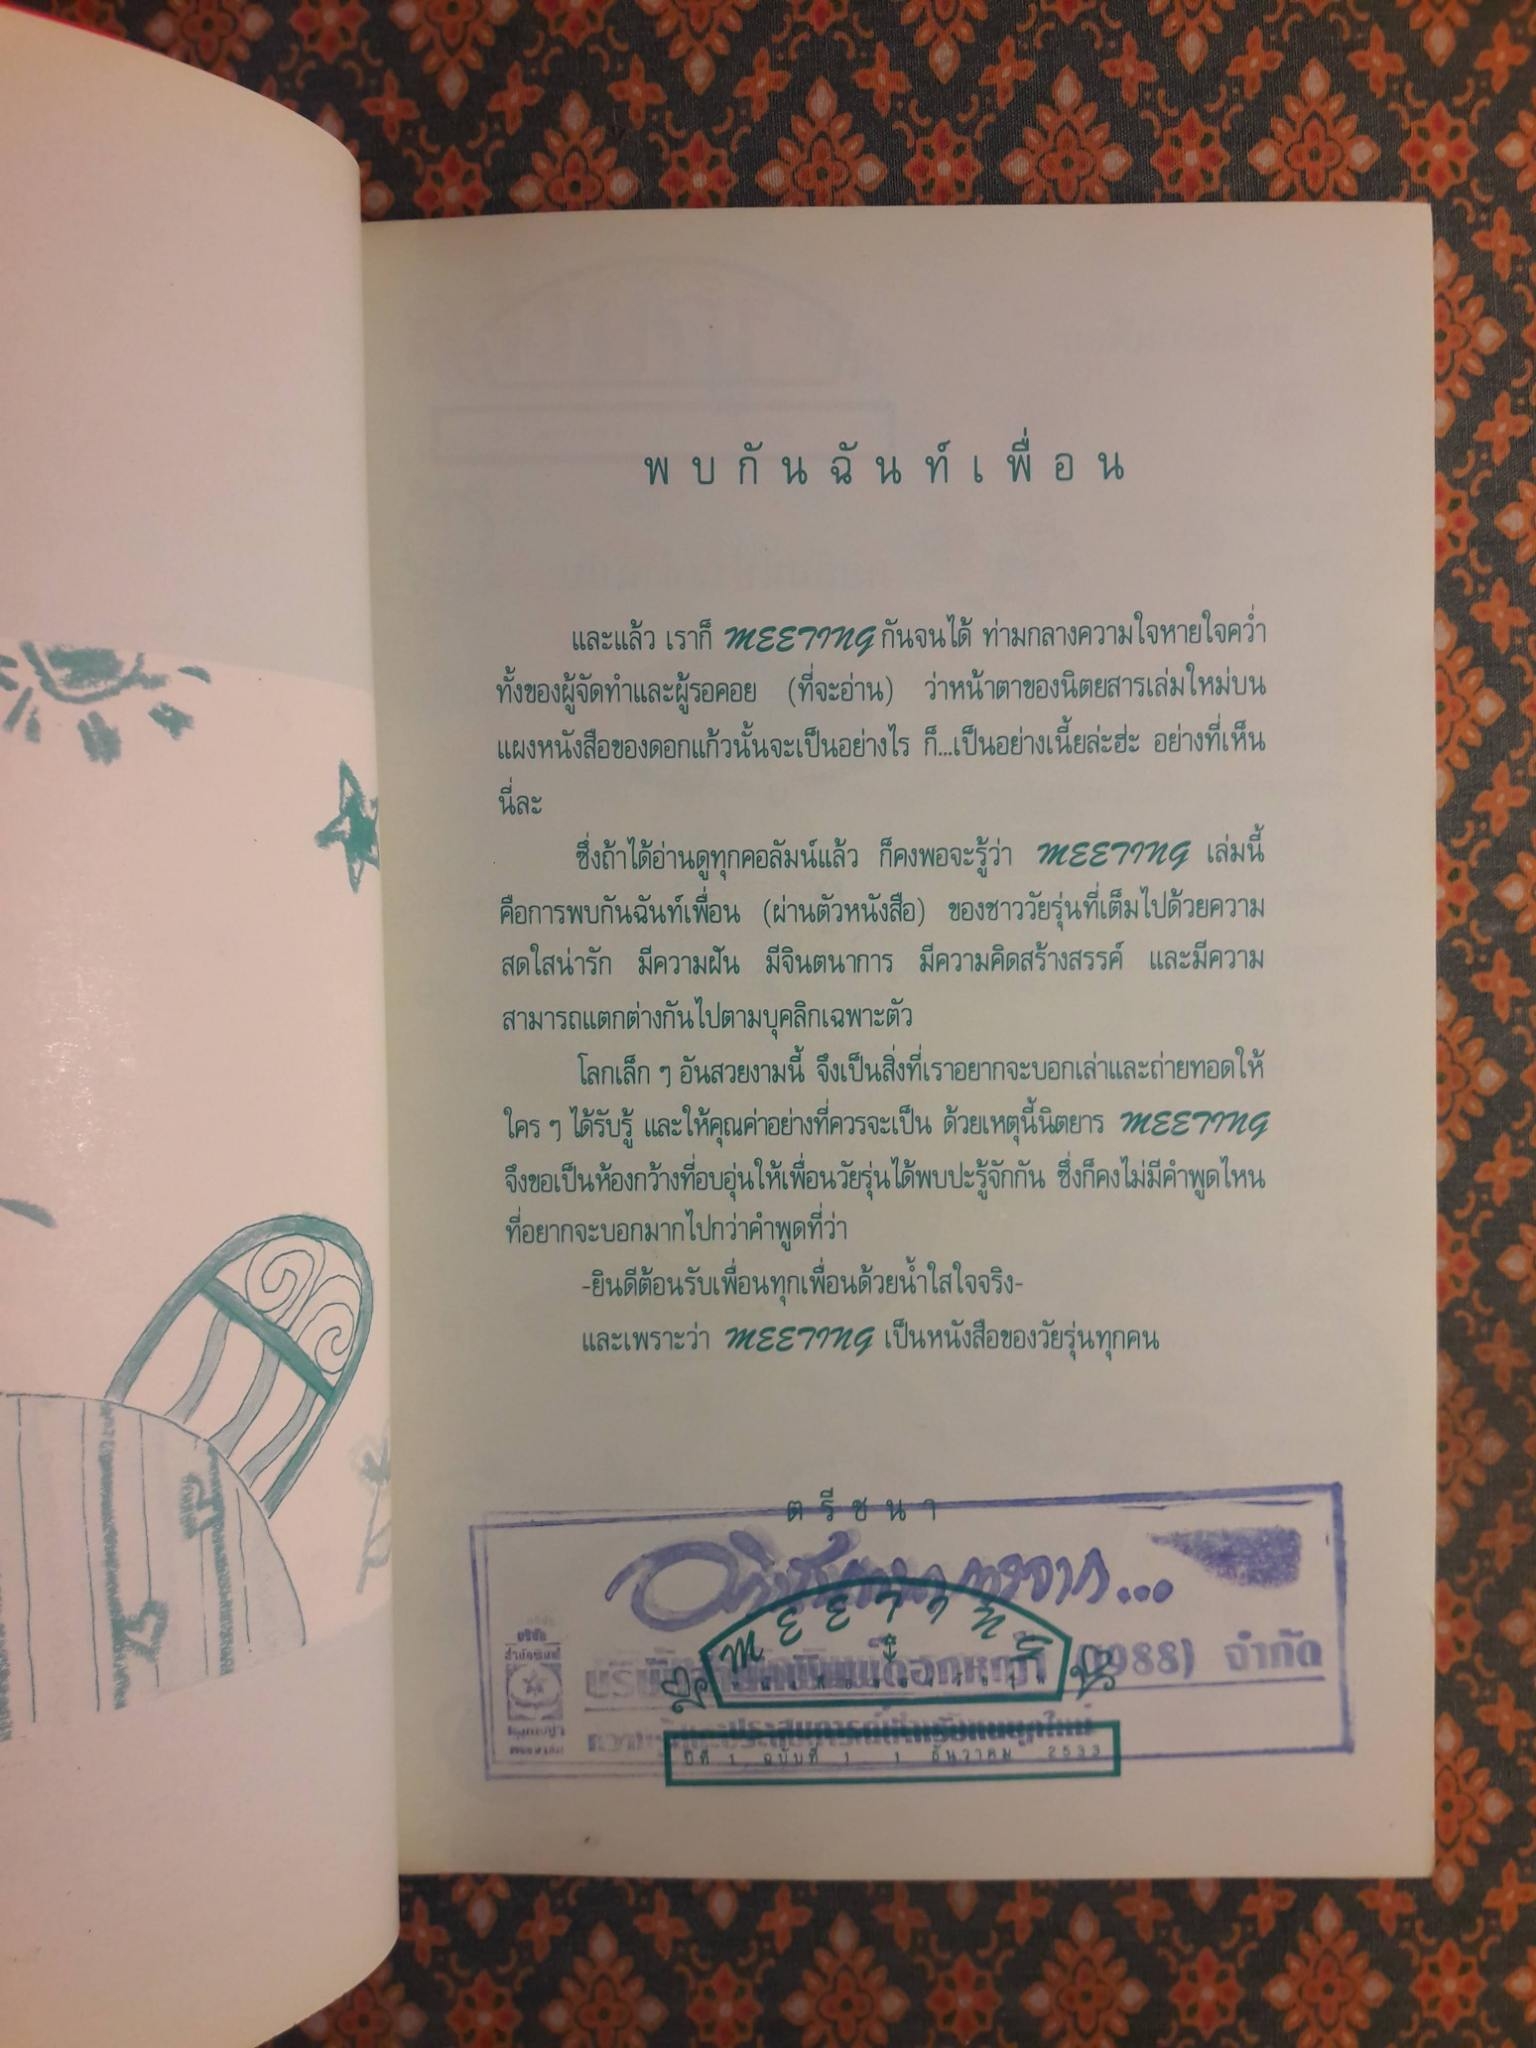 พบกันฉันท์เพื่อน
และแล้ว เราก็ MEETING กันจนได้ ท่ามกลางความใจหายใจคว่ำ
ทั้งของผู้จัดทำและผู้รอคอย (ที่จะอ่าน) ว่าหน้าตาของนิตยสารเล่มใหม่บน
แผงหนังสือของดอกแก้วนั้นจะเป็นอย่างไร ก็...เป็นอย่างเนี้ยล่ะฮ่ะ อย่างที่เห็น
นี่ละ
ซึ่งถ้าได้อ่านดูทุกคอลัมน์แล้ว ก็คงพอจะรู้ว่า MEETING เล่มนี้
คือการพบกันฉันท์เพื่อน (ผ่านตัวหนังสือ) ของชาววัยรุ่นที่เต็มไปด้วยความ
สดใสน่ารัก มีความฝัน มีจินตนาการ มีความคิดสร้างสรรค์ และมีความ
สามารถแตกต่างกันไปตามบุคลิกเฉพาะตัว
โลกเล็ก ๆ อันสวยงามนี้ จึงเป็นสิ่งที่เราอยากจะบอกเล่าและถ่ายทอดให้
ใคร ๆ ได้รับรู้ และให้คุณค่าอย่างที่ควรจะเป็น ด้วยเหตุนี้นิตยาร MEETING
จึงขอเป็นห้องกว้างที่อบอุ่นให้เพื่อนวัยรุ่นได้พบปะรู้จักกัน ซึ่งก็คงไม่มีคำพูดไหน
ที่อยากจะบอกมากไปกว่าคำพูดที่ว่า
-ยินดีต้อนรับเพื่อนทุกเพื่อนด้วยน้ำใสใจจริง-
และเพราะว่า MEETING เป็นหนังสือของวัยรุ่นทุกคน
ตรีชนา
อภินันทนาการจาก...
MEETING
บริษัท สำนักพิมพ์ดอกหญ้า (1988) จำกัด
ปีที่ 1 ฉบับที่ 1 1 ธันวาคม 2533